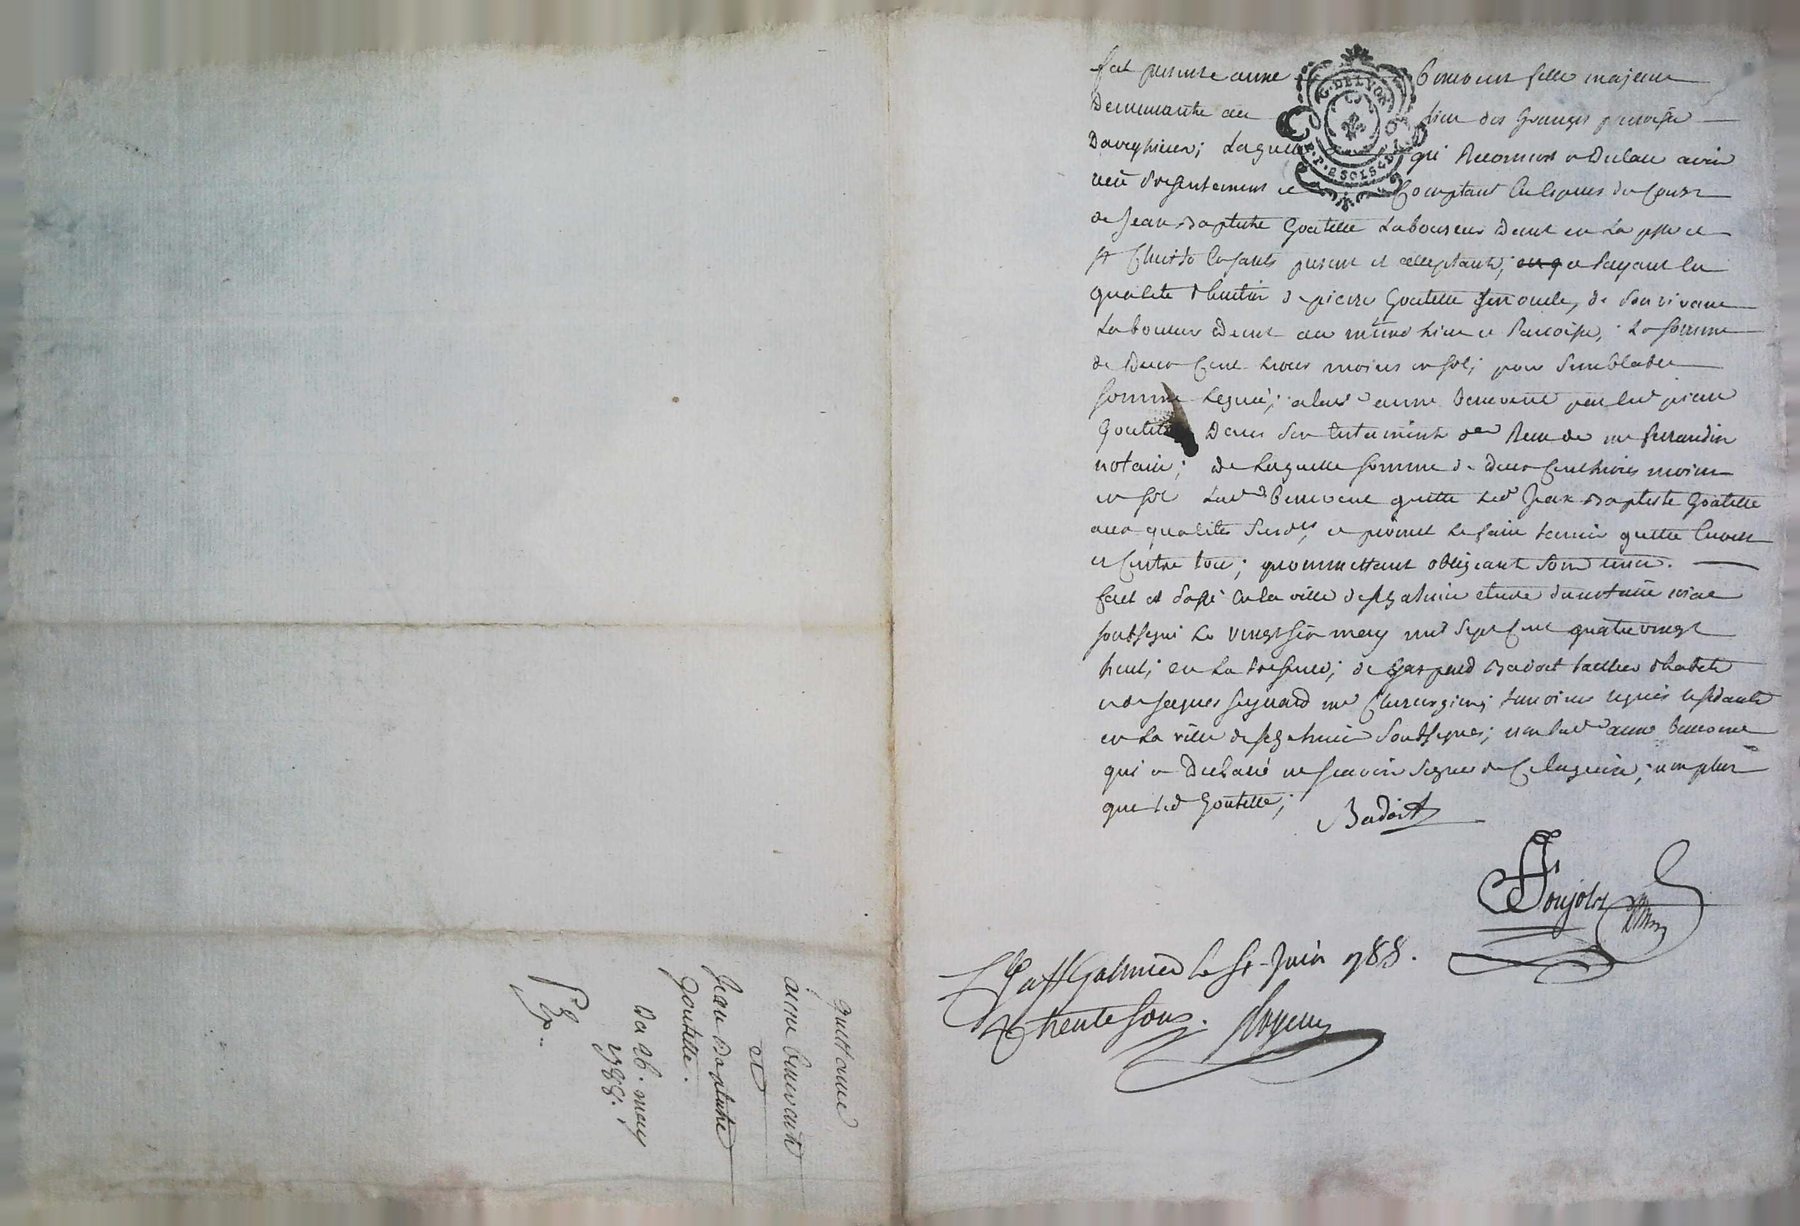 fut presente anne Benevent fille majeure
Demeurante au lieu des Granges parroisse
Daveyzieu; Laquelle gré Reconnoit & Declare avoir
reçu presentement et Comptant En Espèces du Cours
de Jean Baptiste Goutelle Laboureur Demt en La psse de
st present et acceptant, et Payant En
qualité d'heritier de pierre Goutelle son oncle, de Son vivant
Laboureur Demt au même Lieu et Parroisse, La Somme
de Deux Cent Livres moins un sol; pour Semblable
Somme Leguée; a lad anne Benevent par led pierre
Goutelle Dans Son testament Reçu de me
notaire; de Laquelle Somme de Deux Cent Livres moins
un sol Lad Benevent quitte Led Jean Baptiste Goutelle
aux qualités Susd, et promet Le faire tenir quitte Envers
et Contre tous; promettant obligeant Soum renon.
fait et Passé En La ville de st galmier etude du notaire royal
soubsigné Le vingt six may mil Sept Cent quatre vingt
huit; en La Presence; de gaspard Badoit tailleur d'habits
et de Jacques me Chirurgien; temoins requis residants
en La ville de st galmier Soubsignés; non lad anne Benevent
qui a Declaré ne sçavoir signer de Ce Enquise; non plus
que Led Goutelle;
Badoit
Poujolz
Cé a st Galmier le Juin 1788.
R trente sous.
Quittance
anne Benevent
a
Jean Baptiste
goutelle.
Du 26. may
1788.